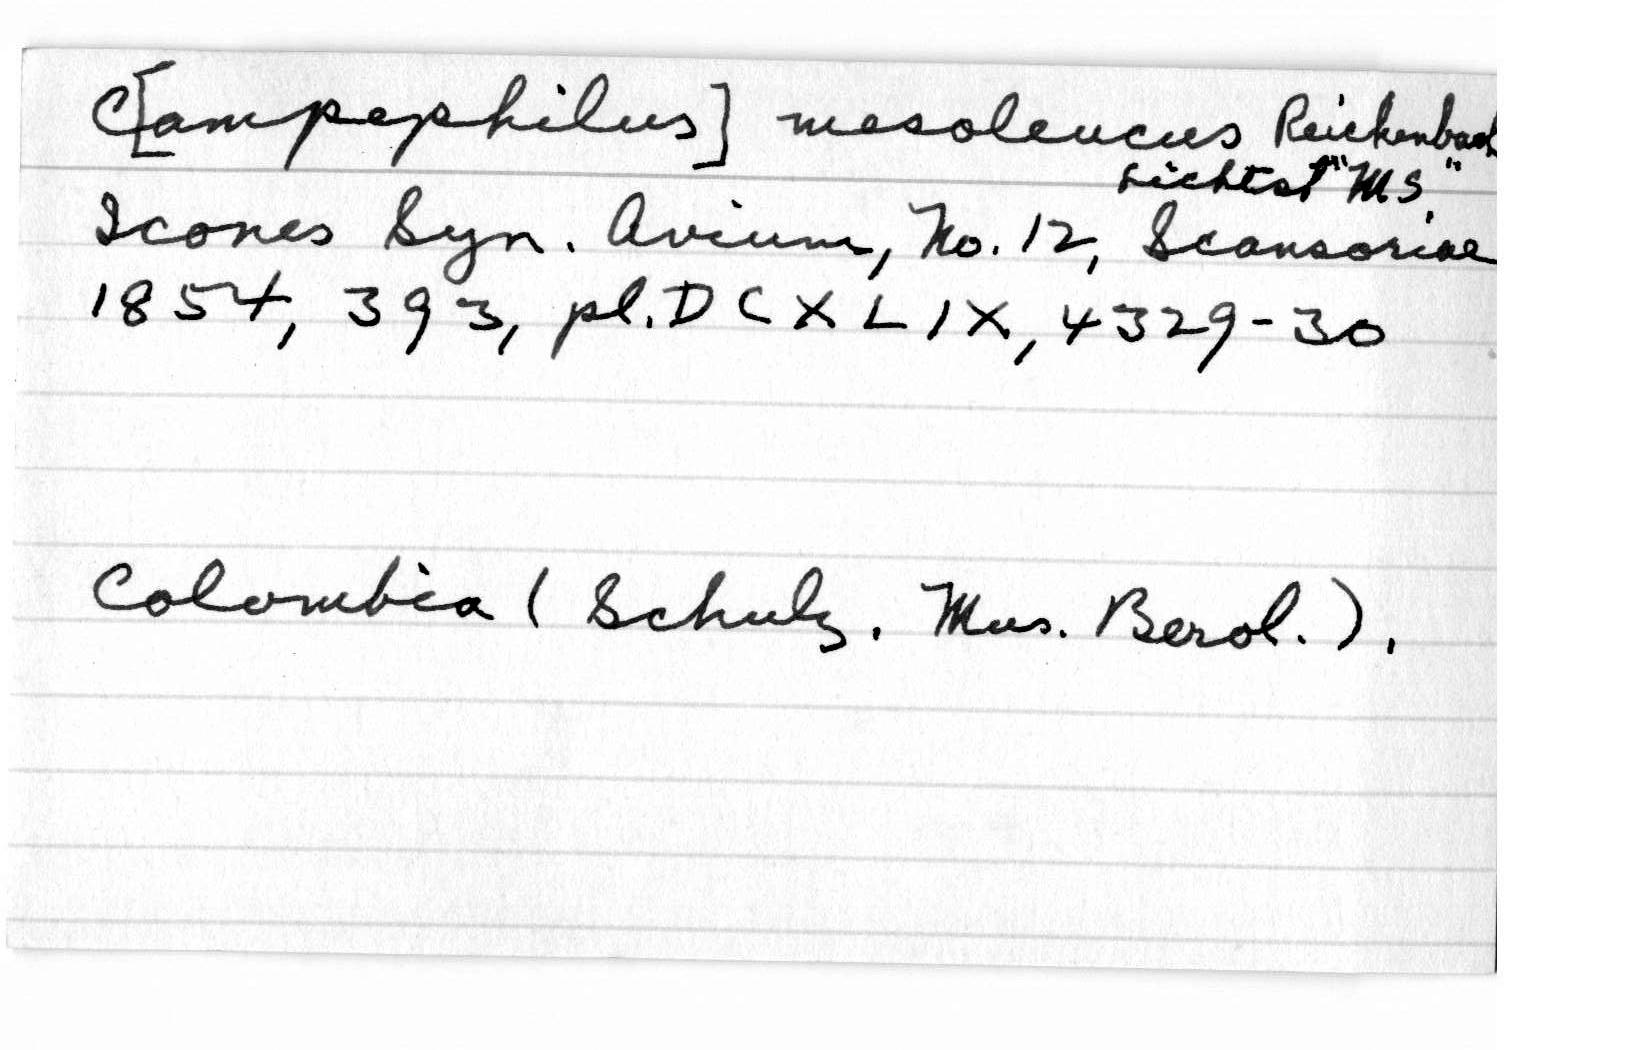 C[ampephilus] mesoleucus Reichenbach
Lichtst "MS."
Icones Syn. Avium, No. 12, Scansoriae
1854, 393, pl. DCXLIX, 4329-30
Colombia (Schulz, Mus. Berol.).